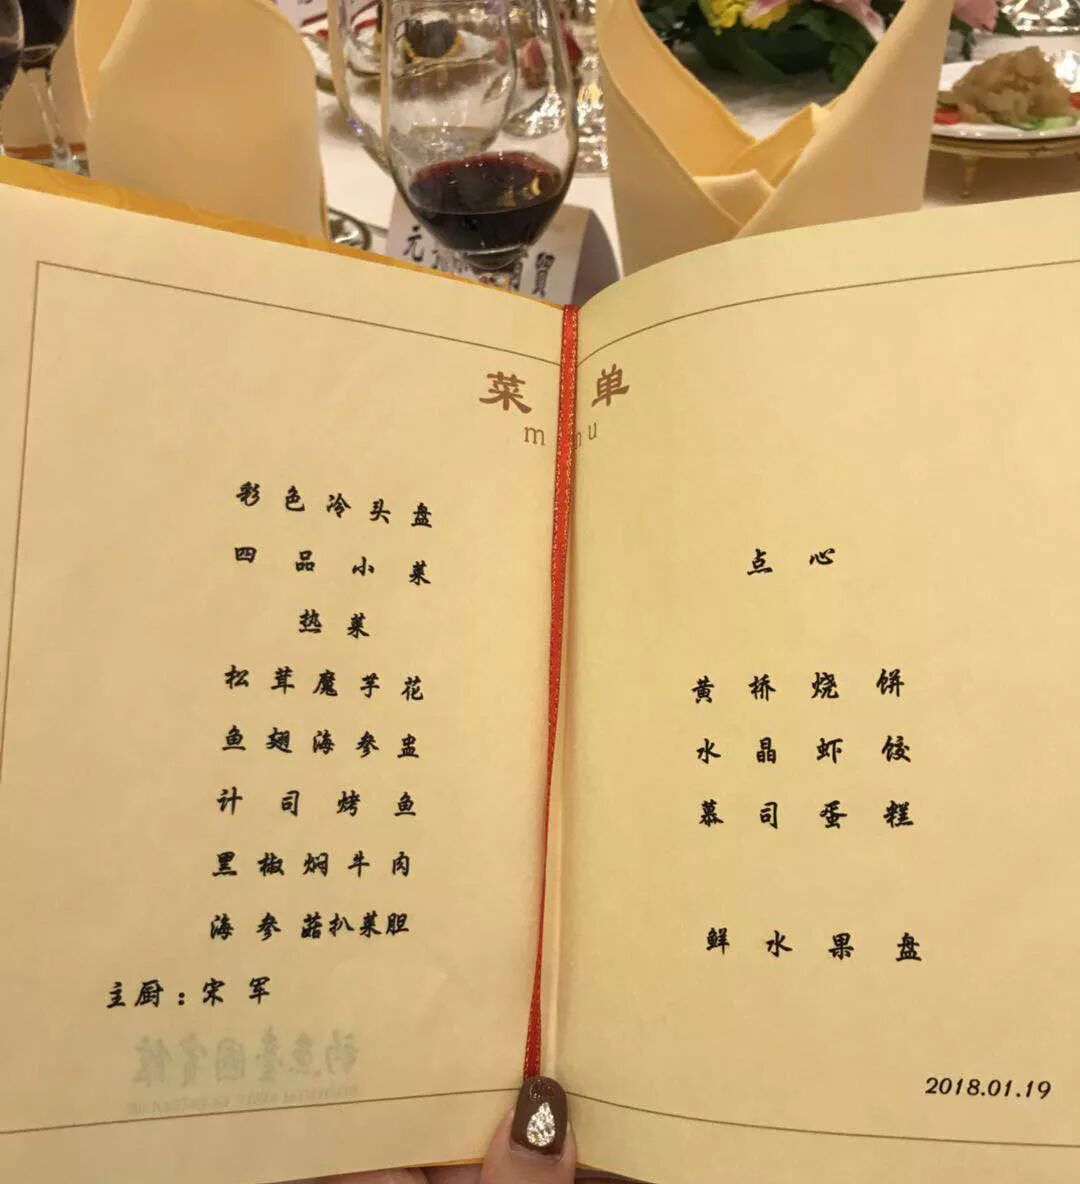 菜单
menu
彩色冷头盘
四品小菜
热菜
松茸魔芋花
鱼翅海参盅
计司烤鱼
黑椒焖牛肉
海参菇扒菜胆
主厨：宋军
点心
黄桥烧饼
水晶虾饺
慕司蛋糕
鲜水果盘
2018.01.19